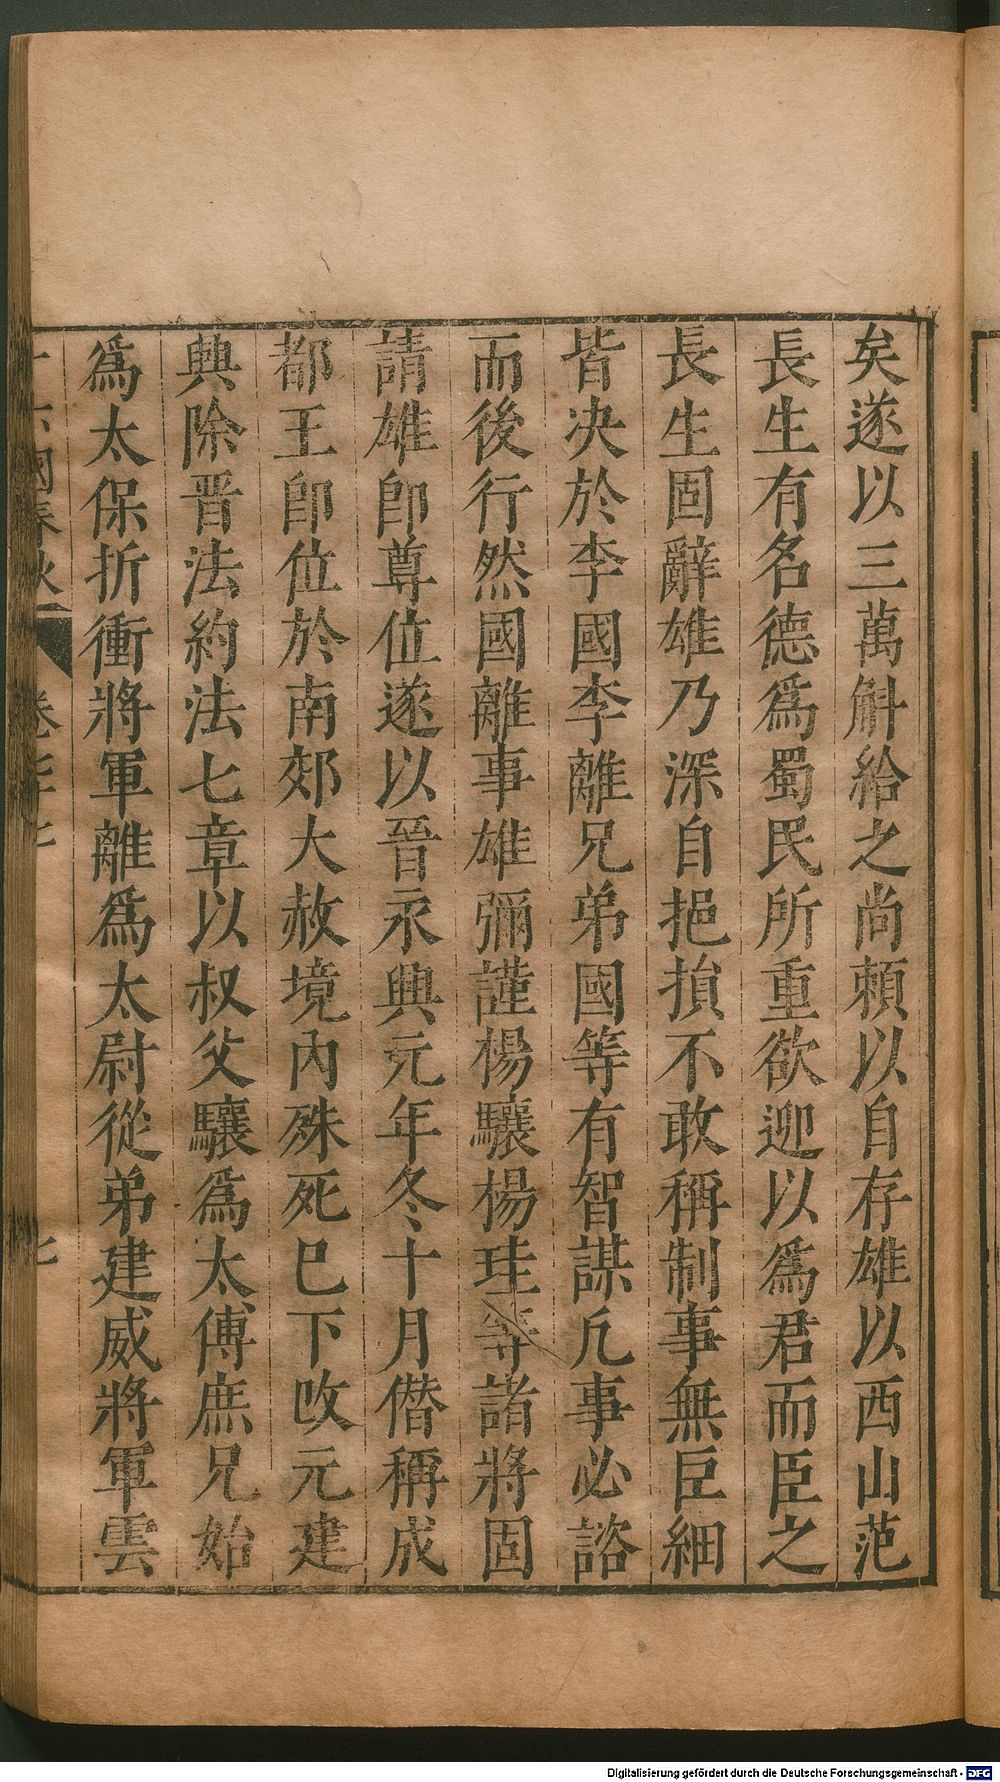 矣遂以三萬斛給之尚賴以自存雄以西山范
長生有名德爲蜀民所重欲迎以爲君而臣之
長生固辭雄乃深自挹損不敢稱制事無巨細
皆决於李國李離兄弟國等有智謀凢事必諮
而後行然國離事雄彌謹楊驤楊珪等諸將固
請雄卽尊位遂以晉永興元年冬十月僭稱成
都王卽位於南郊大赦境內殊死已下改元建
興除晉法約法七章以叔父驤爲太傅庶兄始
爲太保折衝將軍離爲太尉從弟建威將軍雲
國春秋 卷七十七 七
Digitalisierung gefördert durch die Deutsche Forschungsgemeinschaft - DFG